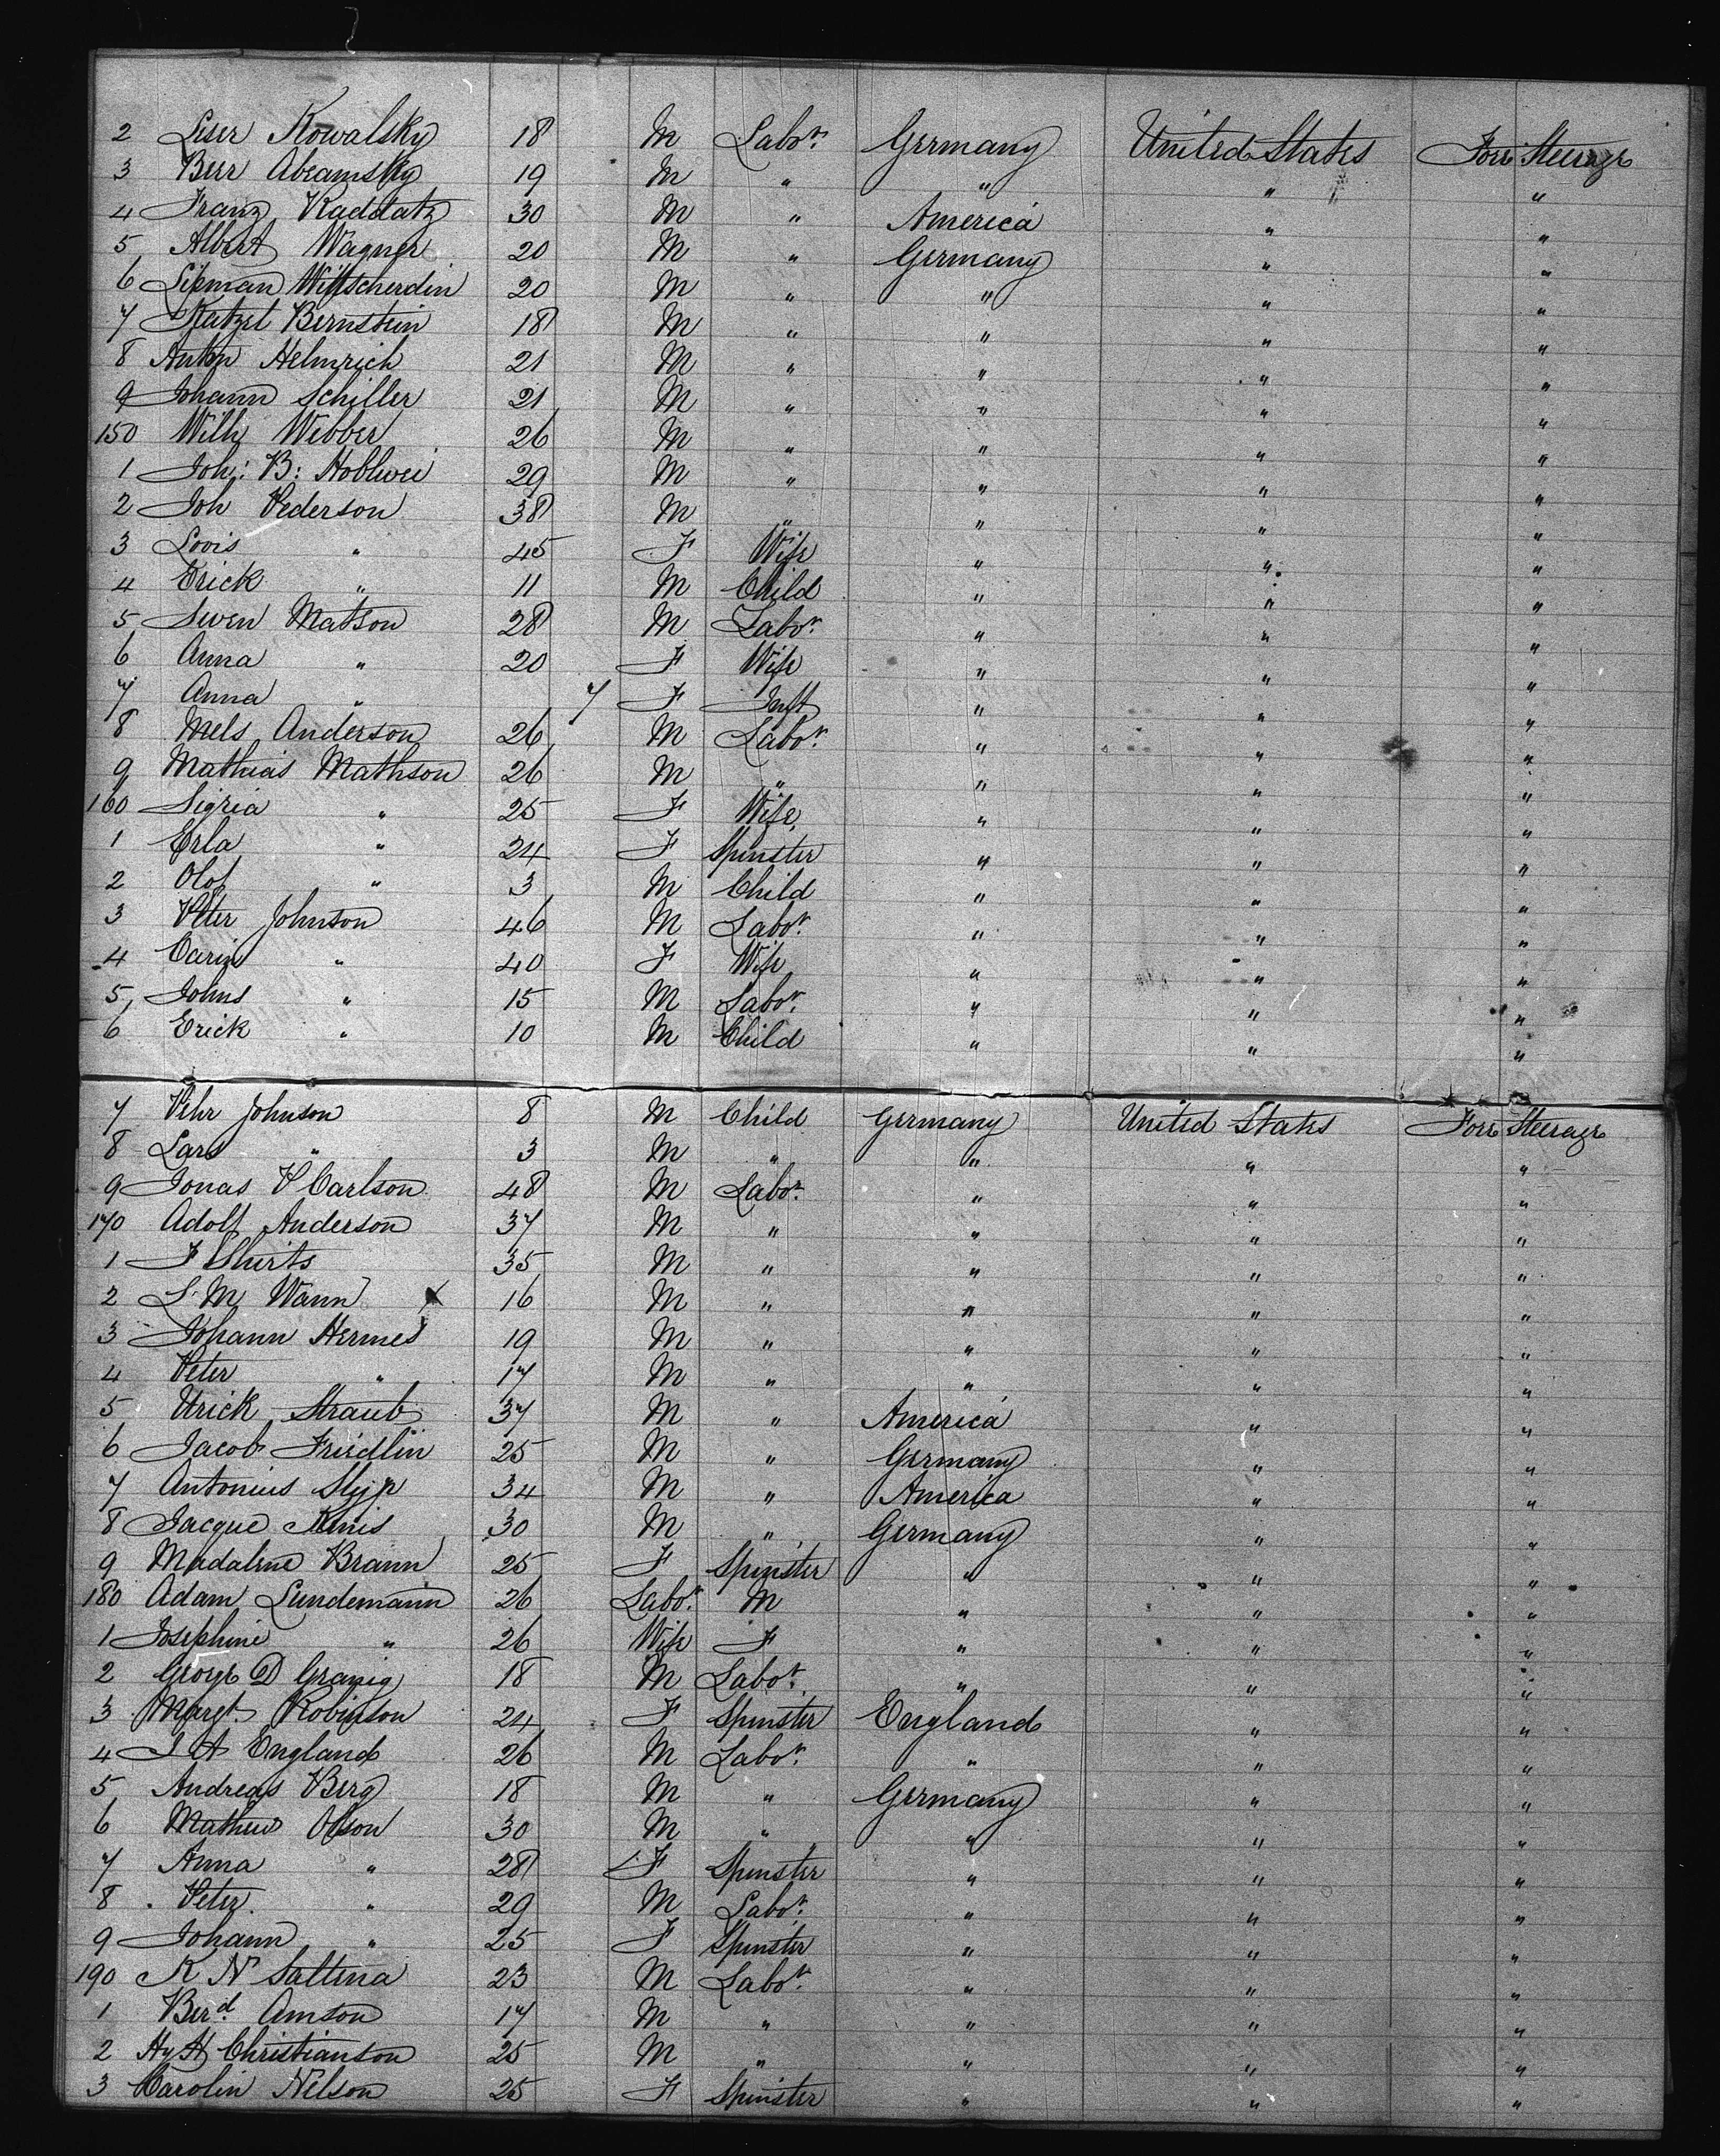 2 Leser Kowalsky 18 M Labor. Germany United States Forr Steerage
3 Berr Abramsky 19 M " " " "
4 Franz Kaddatz 30 M " America " "
5 Albert Wagner 20 M " Germany " "
6 Lipman Wittscherdin 20 M " " " "
7 Katzel Bernstein 18 M " " " "
8 Anton Helmrich 21 M " " " "
9 Johann Schiller 21 M " " " "
150 Wilh Webber 26 M " " " "
1 Joh: B: Hobbwei 29 M " " " "
2 Joh Pederson 38 M " " " "
3 Lovis " 45 F Wife " " "
4 Erick " 11 M Child " " "
5 Swen Matson 28 M Labor. " " "
6 Anna " 20 F Wife " " "
7 Anna " 7 F Inft " " "
8 Mels Anderson 26 M Labor. " " "
9 Mathias Mathson 26 M " " " "
160 Sigria " 25 F Wife " " "
1 Erla " 24 F Spinster " " "
2 Olof " 3 M Child " " "
3 Peter Johnson 46 M Labor. " " "
4 Carin " 40 F Wife " " "
5 Johns " 15 M Labor. " " "
6 Erick " 10 M Child " " "
7 Pehr Johnson 8 M Child Germany United States Forr Steerage
8 Lars " 3 M " " " "
9 Jonas P Carlson 48 M Labor. " " "
170 Adolf Anderson 37 M " " " "
1 F Shirts 35 M " " " "
2 L. M Wann X 16 M " " " "
3 Johann Hermes 19 M " " " "
4 Peter " 17 M " " " "
5 Urick Straub 37 M " America " "
6 Jacob Friedlin 25 M " Germany " "
7 Antonius Slijp 34 M " America " "
8 Jacque Kinis 30 M " Germany " "
9 Madalene Brann 25 F Spinster " " "
180 Adam Lundemann 26 Labor. M " " "
1 Josephine " 26 Wife F " " "
2 George D Granig 18 M Labor. " " "
3 Margt. Robinson 24 F Spinster England " "
4 J A England 26 M Labor. " " "
5 Andreas Berg 18 M " Germany " "
6 Mathew Olson 30 M " " " "
7 Anna " 28 F Spinster " " "
8 Peter " 29 M Labor. " " "
9 Johann " 25 F Spinster " " "
190 K N Saltena 23 M Labor. " " "
1 Berd. Amson 17 M " " " "
2 Hy H Christianson 25 M " " " "
3 Carolin Nelson 25 F Spinster " " "